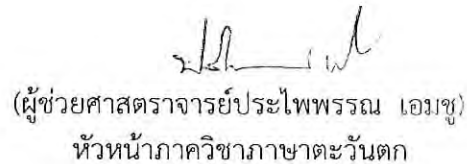 (ผู้ช่วยศาสตราจารย์ประไพพรรณ เอมชู)
หัวหน้าภาควิชาภาษาตะวันตก